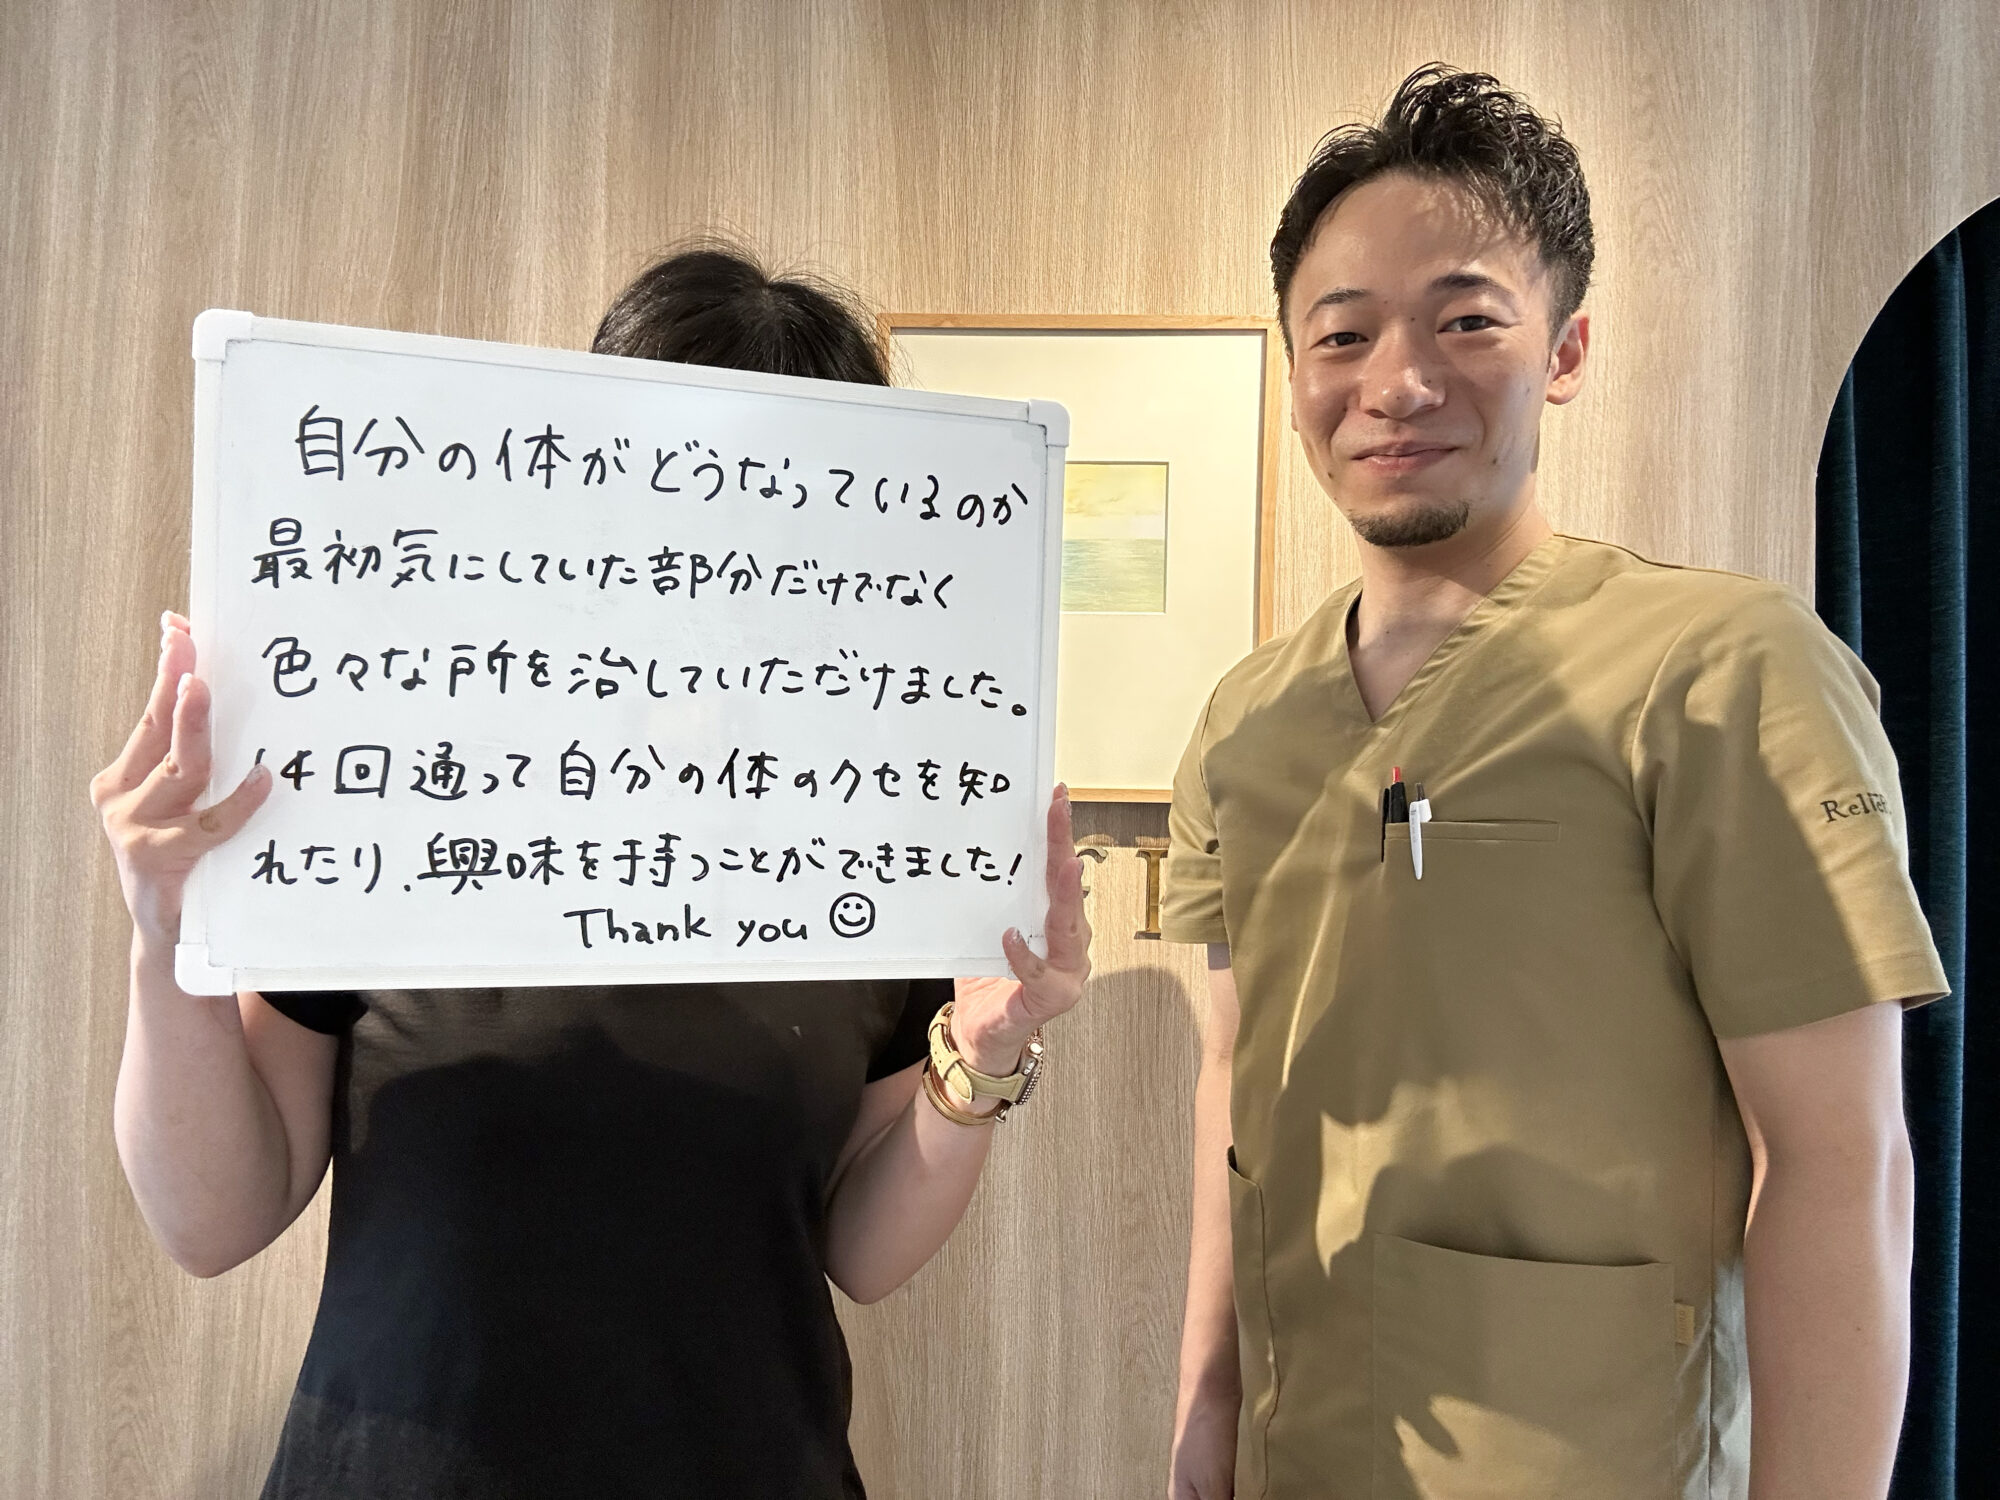 自分の体がどうなっているのか
最初気にしていた部分だけでなく
色々な所を治していただけました。
14回通って自分の体のクセを知
れたり、興味を持つことができました!
Thank you